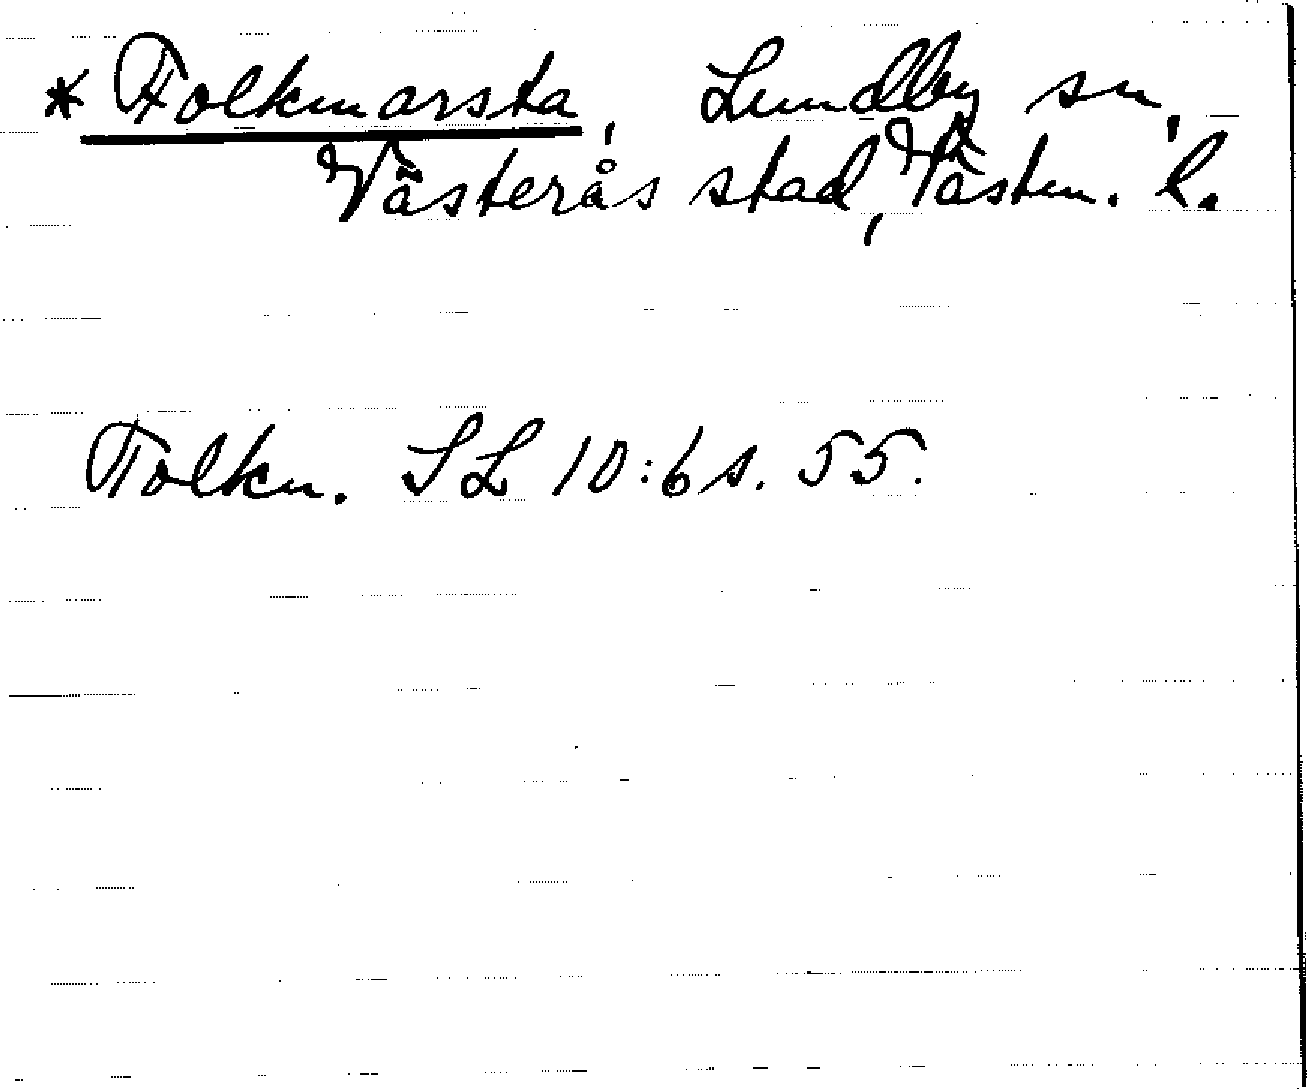 * Folkmarsta, Lundby sn,
Västerås stad, Västm. l.
Folkn. SL 10:6 s. 55.